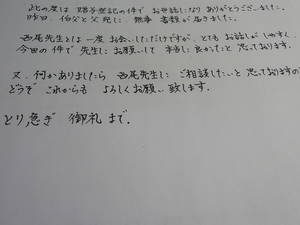 此の度は 贈与登記の件で お世話になり ありがとうございました。
昨日、伯父と父宛に、無事 書類が届きました。
西尾先生とは 一度 お会いしただけですが、とても お話しが しやすく、
今回の件で 先生に お願いして 本当に 良かったと 思っております。
又、何かありましたら 西尾先生に ご相談したいと 思っておりますので
どうぞ これからも よろしくお願い 致します。
とり急ぎ 御礼 まで.